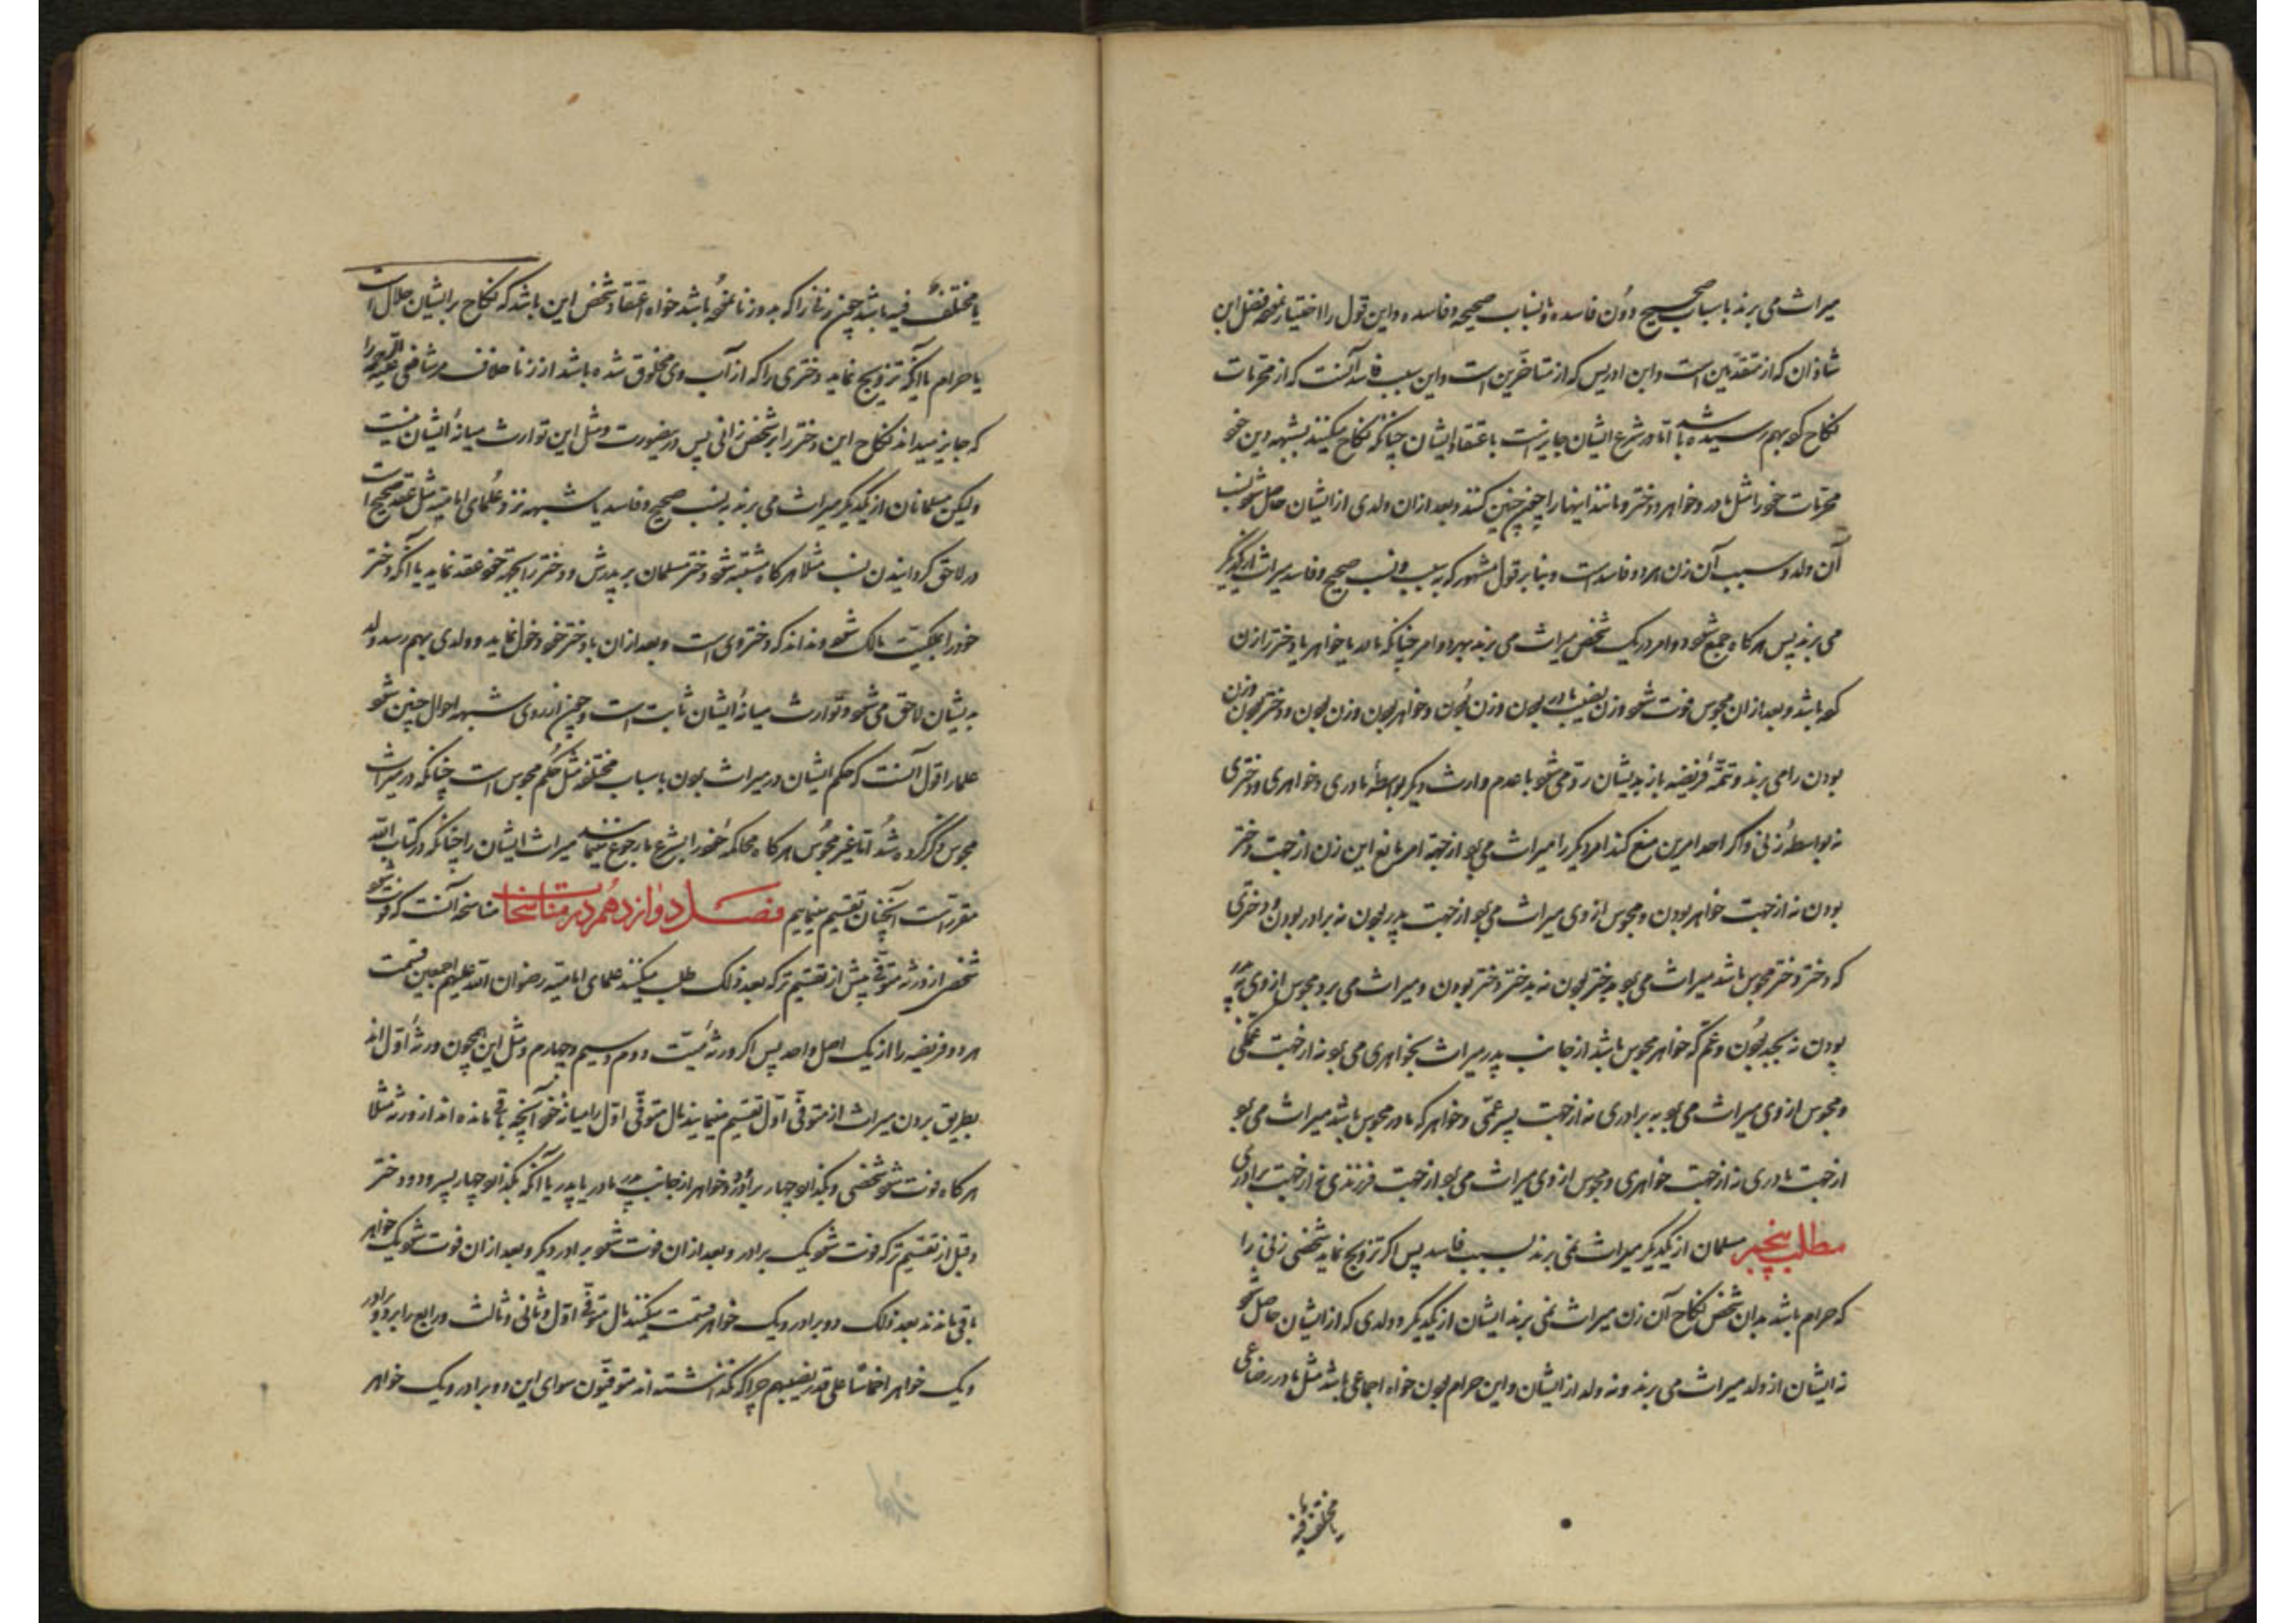 میراث می برند باسباب صحیح دون فاسده و بانساب صحیحه و فاسده و این قول را اختیار نموده فضل ابن
شاذان که از متقدمین است و ابن ادریس که از متاخرین است و این سبب فاسد آنست که از محرمات
نکاح کو بهم رسیده باشد اما در شرع ایشان جایز است باعتقاد ایشان چنانکه نکاح میکنند بشبهه دین خود
محرمات خود را مثل مادر و خواهر و دختر و مانند اینها را چون چنین کنند و بعد از ان ولدی از ایشان حاصل شود نسب
آن ولد و سبب آن زن هر دو فاسد است و بنا بر قول مشهور که به سبب و نسب صحیح و فاسد میراث از یکدیگر
می برند پس هر کاه جمع شود دو امر در یک شخص میراث می برند بهر دو امر چنانکه مادر یا خواهر یا دختر زن
که باشد و بعد از ان مجوس فوت شود زن نصیب مادر بودن و زن بودن و خواهر بودن و زن بودن و دختر بودن و زن
بودن را می برند و تتمه فریضه باز بدیشان رد می شود با عدم وارث دیگر بواسطه مادری و خواهری و دختری
نه بواسطه زنی و اکر احد امرین منع کند امر دیکر را میراث می برد از جهة امر مانع این زن از جهت دختر
بودن نه از جهت خواهر بودن و مجوس از وی میراث می برد از جهت پدر بودن نه برادر بودن و دختری
که دختر دختر مجوس باشد میراث می برد به دختر بودن نه بدختر دختر بودن و میراث می برد مجوس از وی به پدر
بودن نه بجد بودن و عم که خواهر مجوس باشد از جانب پدر میراث بخواهری می برد نه از جهت عمگی
و مجوس از وی میراث می برد به برادری نه از جهت پسر عمی و خواهر که مادر مجوس باشد میراث می برد
از جهت مادری نه از جهت خواهری و مجوس از وی میراث می برد از جهت فرزندی نه از جهت برادری
مطلب پنجم مسلمان از یکدیگر میراث نمی برند بسبب فاسد پس اکر تزویج نماید شخصی زنی را
که حرام باشد بدان شخص نکاح آن زن میراث نمی برند ایشان از یکدیگر و ولدی که از ایشان حاصل شود
نه ایشان از ولد میراث می برند و نه ولد از ایشان و این حرام بودن خواه اجماعی باشد مثل مادر رضاعی
یا مختلف فیه
یا مختلف فیه باشد چون زنی را که به وی زنا نموده باشد خواه اعتقاد شخص این باشد که نکاح بر ایشان حلال است
یا حرام یا آنکه تزویج نماید دختری را که از آب وی مخلوق شده باشد از زنا خلاف مر شافعی علیه الرحمه را
که جایز میداند نکاح این دختر را بر شخص زانی پس درینصورت و مثل این توارث میانه ایشان نیست
ولیکن مسلمانان از یکدیگر میراث می برند به نسب صحیح و فاسد یا شبهه نزد علمای امامیه مثل عقد صحیح است
در لاحق کردانیدن نسب مثلا هر کاه مشتبه شود دختر مسلمان بر پدرش و دختر را بجهة خود عقد نماید یا آنکه دختر
خود را بملکیت مالک شود و نداند که دختر وی است و بعد از ان با دختر خود دخول نماید و ولدی بهم رسد ولد
بدیشان لاحق می شود و توارث میانه ایشان ثابت است و چون از روی شبهه احوال چنین شود
علما را قول آنست که حکم ایشان در میراث بودن باسباب مختلفه مثل حکم مجوس است چنانکه در میراث
مجوس ذکر کرده شد اما غیر مجوس هر کاه محاکمه خود را بشرع ما رجوع نمایند میراث ایشان را چنانکه در کتاب الله
مقررست آنچنان تقسیم مینماییم فصل دوازدهم در مناسخات مناسخه آنست که فوت شود
شخصی از ورثه متوفی پیش از تقسیم ترکه بعد ذلک طلب میکنند علمای امامیه رضوان الله علیهم اجمعین قسمت
هر دو فریضه را از یک اصل واحد پس اکر ورثه میت دوم و سیم و چهارم و مثل این همچون ورثه اول اند
بطریق بردن میراث از متوفی اول تقسیم مینمایند مال متوفی اول را میانه خود آنچه باقی مانده اند از ورثه مثلا
هر کاه فوت شود شخصی و بگذارد چهار برادر و دو خواهر از جانب پدر مادر یا پدر یا آنکه بگذارد چهار پسر و دو دختر
و قبل از تقسیم ترکه فوت شود یک برادر و بعد از ان فوت شود برادر دیکر و بعد از ان فوت شود یک خواهر
باقی ماندند بعد ذلک دو برادر و یک خواهر قسمت میکنند مال متوفی اول و ثانی و ثالث و رابع را بر دو برادر
و یک خواهر اخماسا علی قدر نصیبهم چرا که نگذاشته اند متوفیون سوای این دو برادر و یک خواهر